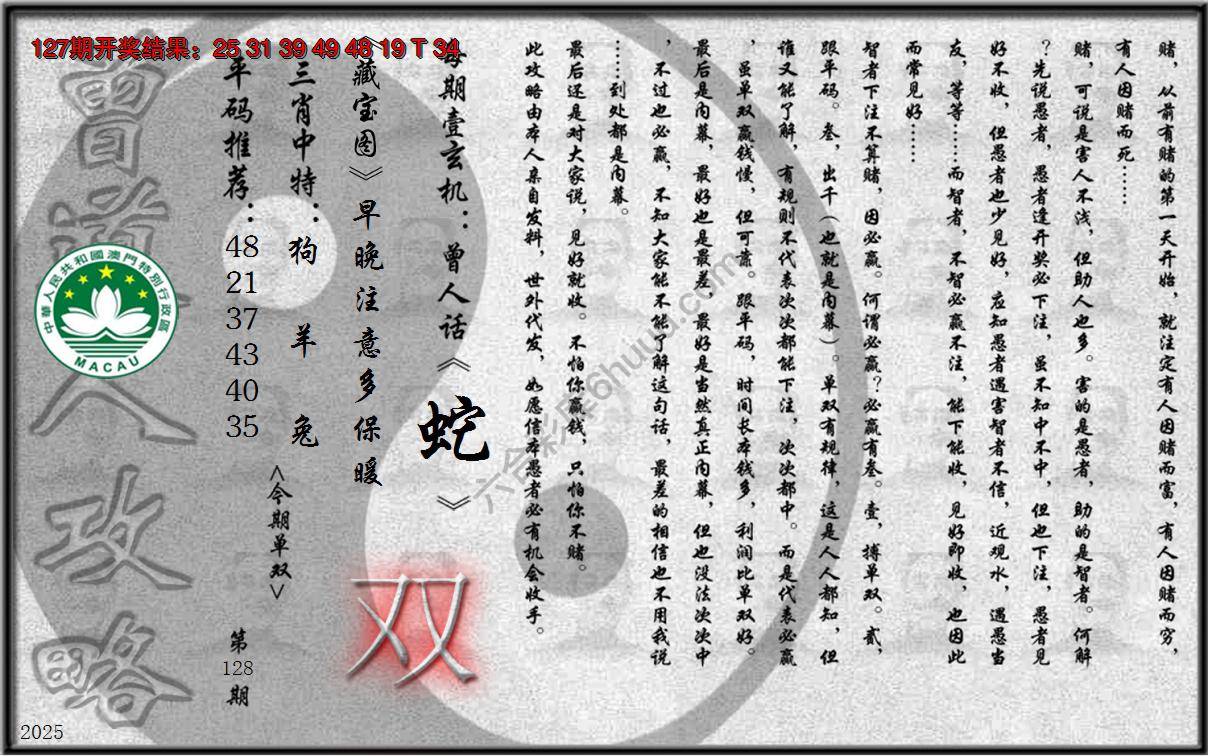 127期开奖结果：25 31 39 49 48 19 T 34
赌，从前有赌的第一天开始，就注定有人因赌而富，有人因赌而穷，
有人因赌而死……
赌，可说是害人不浅，但助人也多。害的是愚者，助的是智者。何解
？先说愚者，愚者逢开奖必下注，虽不知中不中，但也下注，愚者见
好不收，但愚者也少见好，应知愚者遇害智者不信，近观水，遇愚当
友，等等……而智者，不智必赢不注，能下能收，见好即收，也因此
而常见好……
智者下注不算赌，因必赢。何谓必赢？必赢有叁。壹，搏单双。贰，
跟平码。叁，出千（也就是内幕）。单双有规律，这是人人都知，但
谁又能了解，有规则不代表次次都能下注，次次都中。而是代表必赢
，虽单双赢钱慢，但可靠。跟平码，时间长本钱多，利润比单双好。
最后是内幕，最好也是最差，最好是当然真正内幕，但也没法次次中
，不过也必赢，不知大家能不能了解这句话，最差的相信也不用我说
……到处都是内幕。
最后还是对大家说，见好就收。不怕你赢钱，只怕你不赌。
此攻略由本人亲自发料，世外代发，如愿信本愚者必有机会收手。
每期壹玄机：曾人话《蛇》
《藏宝图》早晚注意多保暖
三肖中特：狗 羊 兔
平码推荐：48 21 37 43 40 35
<今期单双>
双
第128期
曾道人攻略
中華人民共和國澳門特別行政區
MACAU
六合彩库6huuu.com
2025